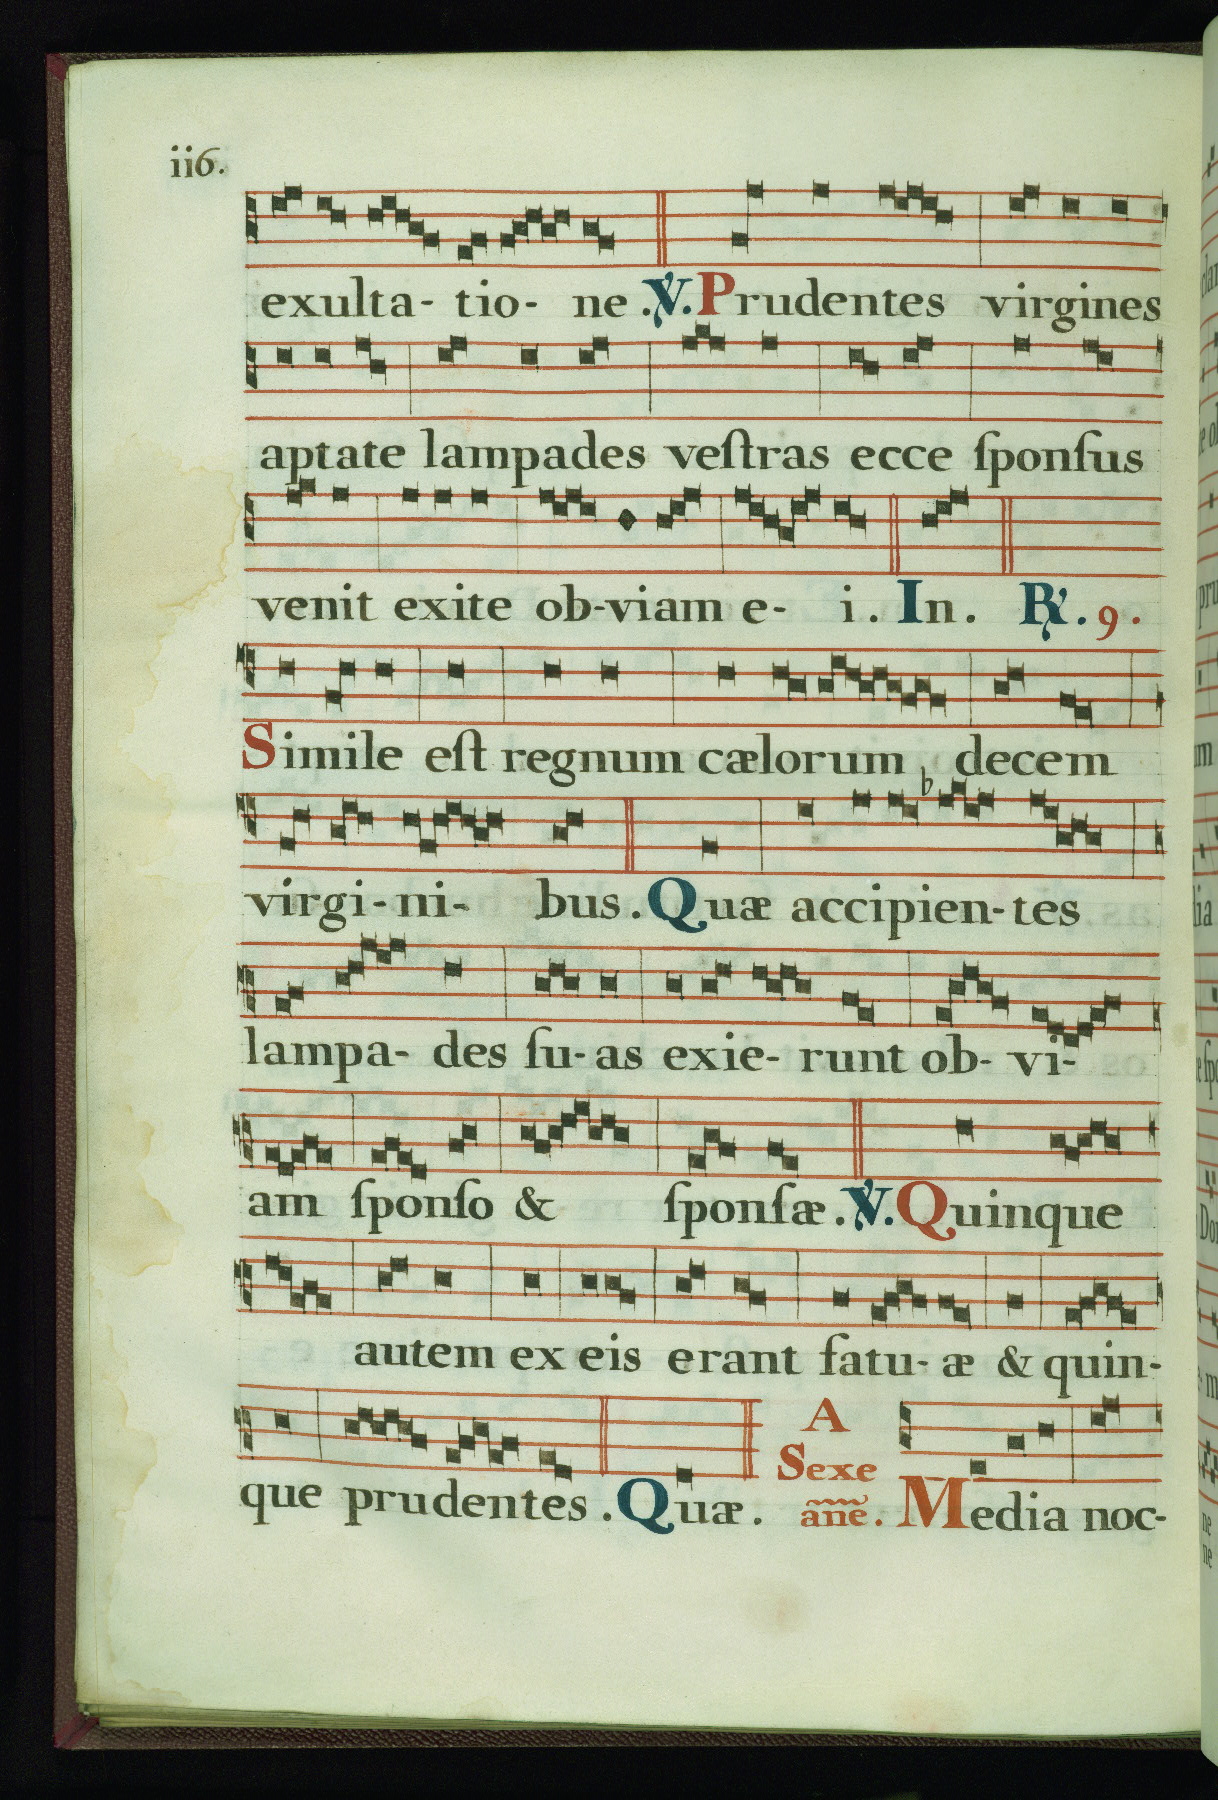 ii6.
exulta- tio- ne. ℣. Prudentes virgines
aptate lampades veſtras ecce ſponſus
venit exite ob-viam e- i. In. ℟. 9.
Simile eſt regnum cælorum decem
virgi-ni- bus. Quæ accipien-tes
lampa- des ſu-as exie- runt ob- vi-
am ſponſo & ſponſæ. ℣. Quinque
autem ex eis erant fatu- æ & quin-
que prudentes. Quæ. A Sexe anẽ. Media noc-